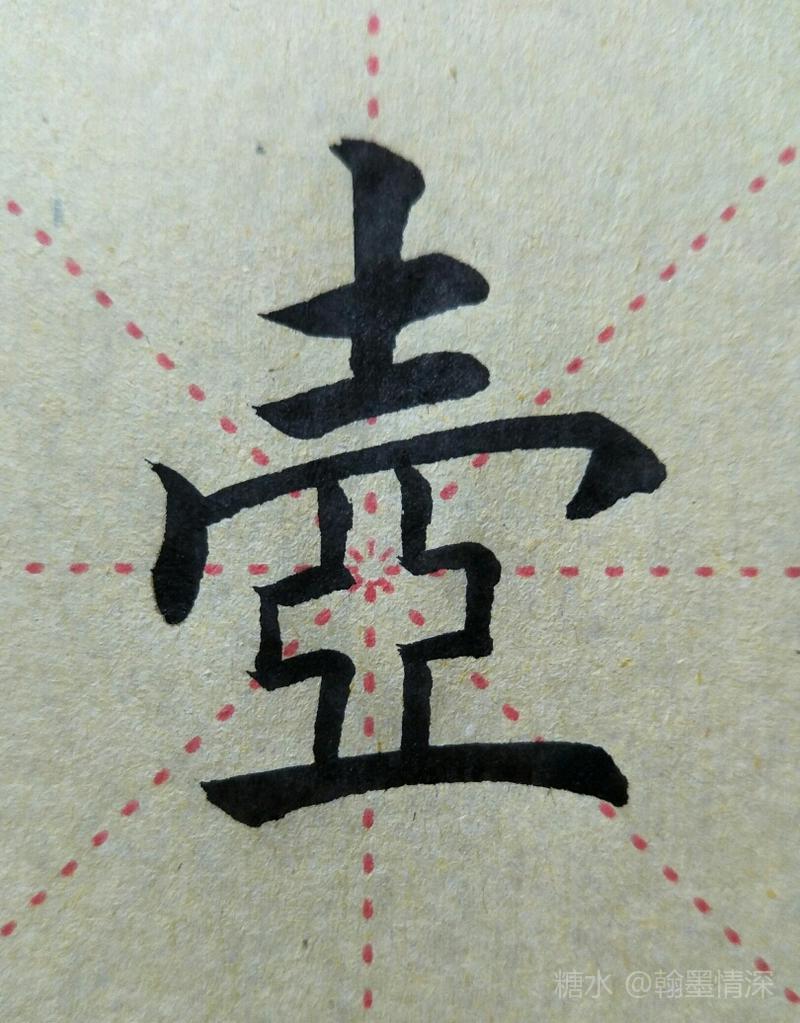 壺
糖水 @翰墨情深